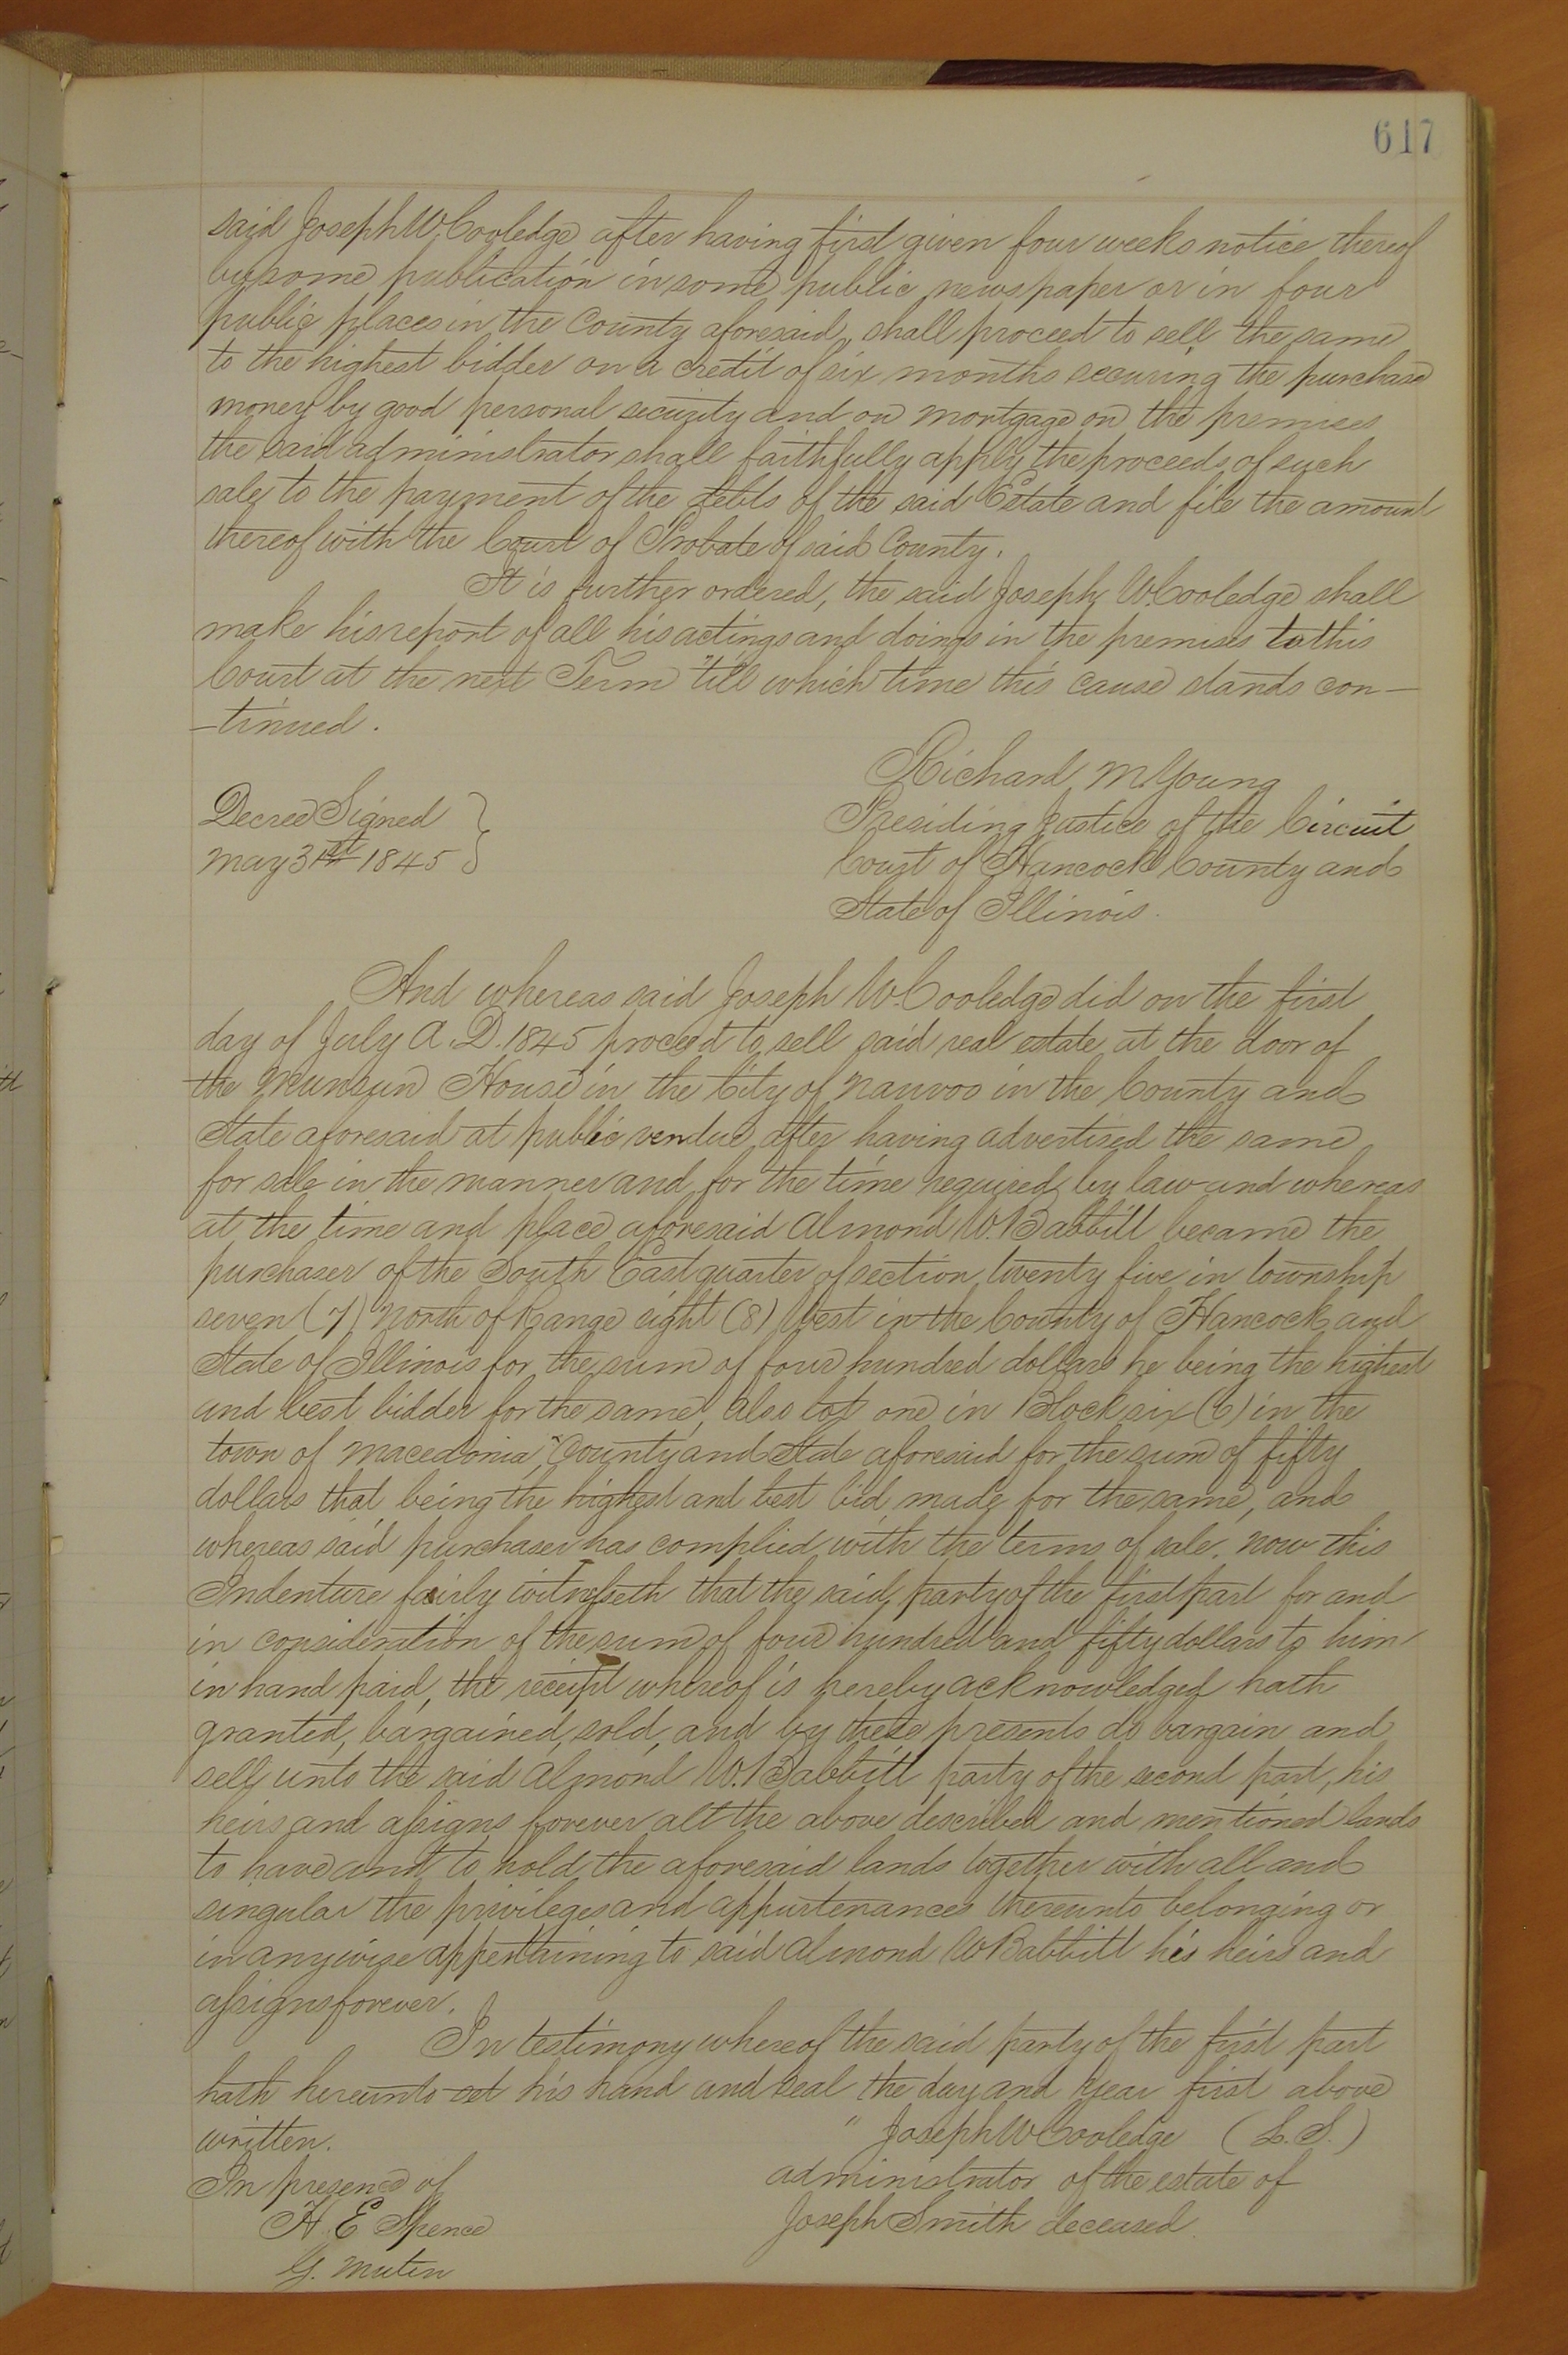 617
said Joseph W. Cooledge after having first given four weeks notice thereof
by some publication in some public newspaper or in four
public places in the County aforesaid, shall proceed to sell the same
to the highest bidder on a credit of six months securing the purchase
money by good personal security and on mortgage on the premises
the said administrator shall faithfully apply the proceeds of such
sale to the payment of the debts of the said Estate and file the amount
thereof with the Court of Probate of said County.
It is further ordered, the said Joseph W. Cooledge shall
make his report of all his actings and doings in the premises to this
Court at the next Term "till which time this cause stands con-
-tinued.
Richard M. Young
Decree Signed
Presiding Justice of the Circuit
May 31st 1845
Court of Hancock County and
State of Illinois.
And whereas said Joseph W. Cooledge did on the first
day of July A.D. 1845 proceed to sell said real estate at the door of
the Munsun House in the City of Nauvoo in the County and
State aforesaid at public vendue, after having advertised the same
for sale in the manner and for the time required by law and whereas
at the time and place aforesaid Almond W. Babbitt became the
purchaser of the South East quarter of section twenty five in township
seven (7) North of Range eight (8) West in the County of Hancock and
State of Illinois for the sum of four hundred dollars he being the highest
and best bidder for the same, also lot one in Block six (6) in the
town of Macedonia, County and State aforesaid for the sum of fifty
dollars that being the highest and best bid made for the same, and
whereas said purchaser has complied with the terms of sale. Now this
Indenture fairly witnesseth that the said party of the first part for and
in consideration of the sum of four hundred and fifty dollars to him
in hand paid, the receipt whereof is hereby acknowledged hath
granted, bargained, sold, and by these presents do bargain and
sell unto the said Almond W. Babbitt party of the second part, his
heirs and assigns forever all the above described and mentioned lands
to have and to hold the aforesaid lands together with all and
singular the privileges and appurtenances thereunto belonging or
in anywise appertaining to said Almond W Babbitt his heirs and
assigns forever.
In testimony whereof the said party of the first part
hath hereunto set his hand and seal the day and year first above
written.
" Joseph W Cooledge (L.S.)
In presence of
administrator of the estate of
H. E Spence
Joseph Smith deceased.
G. Mutin